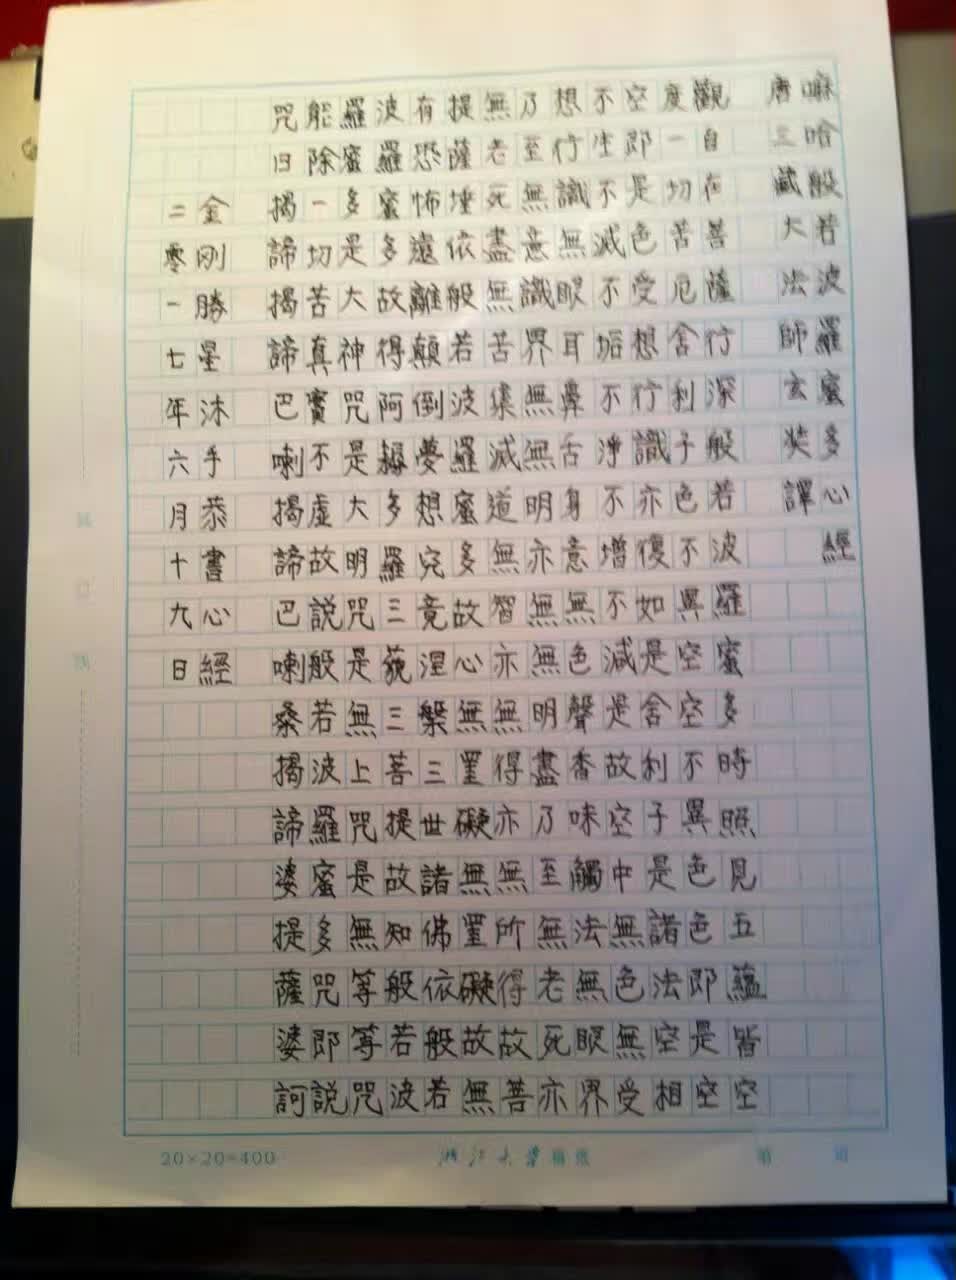 嘛哈般若波羅蜜多心經
唐三藏大法師玄奘譯
觀自在菩薩行深般若波羅蜜多時照見五蘊皆空
度一切苦厄舍利子色不異空空不異色色即是空
空即是色受想行識亦復如是舍利子是諸法空相
不生不滅不垢不淨不增不減是故空中無色無受
想行識無眼耳鼻舌身意無色聲香味觸法無眼界
乃至無意識界無無明亦無無明盡乃至無老死亦
無老死盡無苦集滅道無智亦無得亦無所得故菩
提薩埵依般若波羅蜜多故心無罣礙無罣礙故無
有恐怖遠離顛倒夢想究竟涅槃三世諸佛依般若
波羅蜜多故得阿耨多羅三藐三菩提故知般若波
羅蜜多是大神咒是大明咒是無上咒是無等等咒
能除一切苦真實不虛故說般若波羅蜜多咒即說
咒曰揭諦揭諦巴喇揭諦巴喇桑揭諦婆提薩婆訶
金剛勝星沐手恭書心經
二零一七年六月十九日
20×20=400
浙江大學稿紙